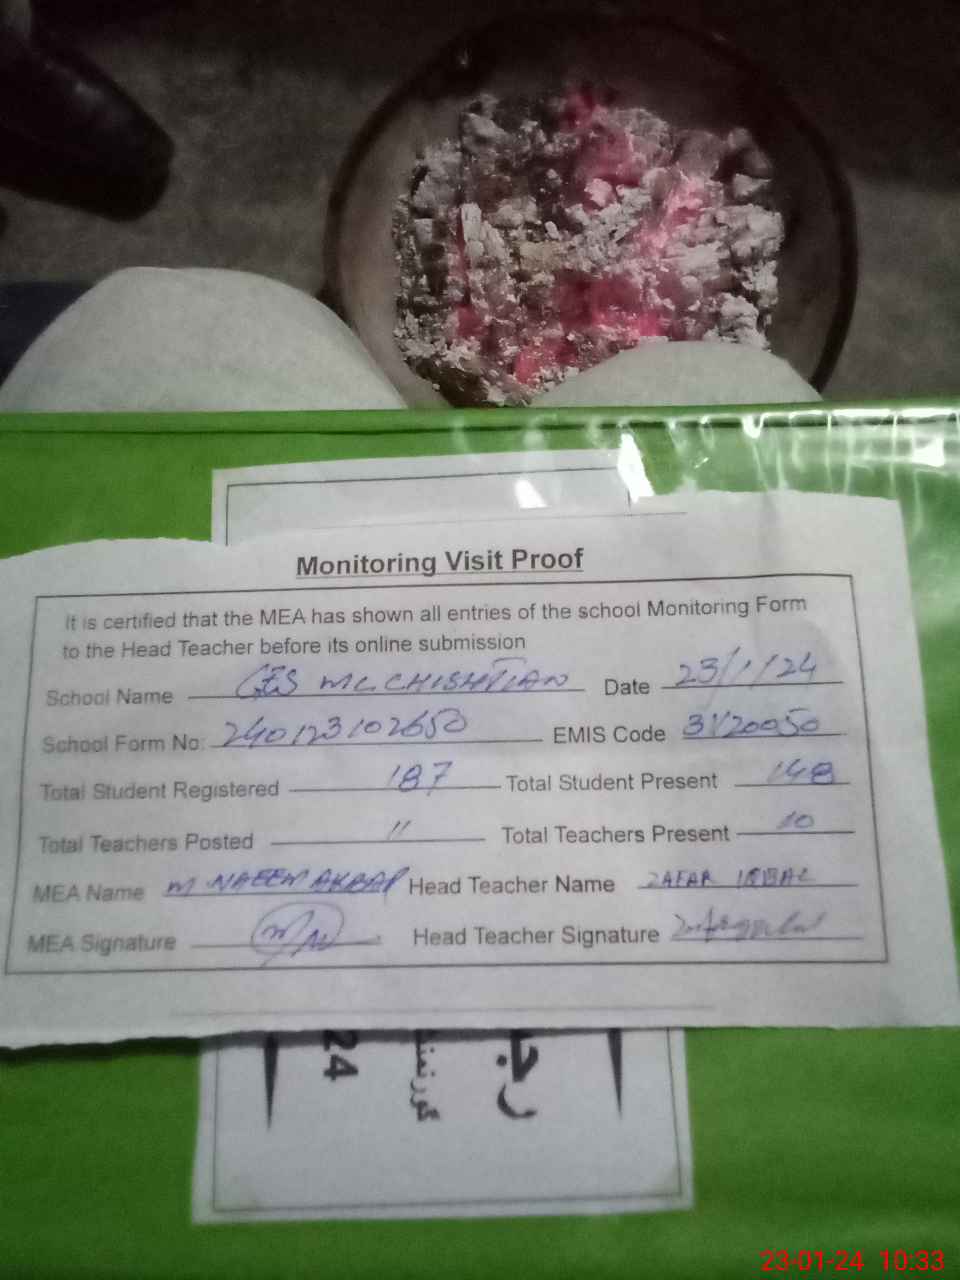 Monitoring Visit Proof
It is certified that the MEA has shown all entries of the school Monitoring Form
to the Head Teacher before its online submission
School Name GES MC CHISHTIAN Date 23/1/24
School Form No: 240123102650 EMIS Code 31120050
Total Student Registered 187 Total Student Present 148
Total Teachers Posted 11 Total Teachers Present 10
MEA Name M NAEEM AKBAR Head Teacher Name ZAFAR IQBAL
MEA Signature Head Teacher Signature
24
23-01-24 10:33